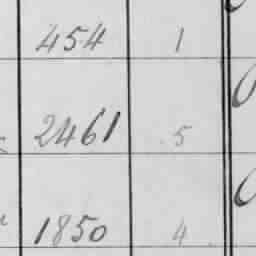 454 1
2461 5
1850 4